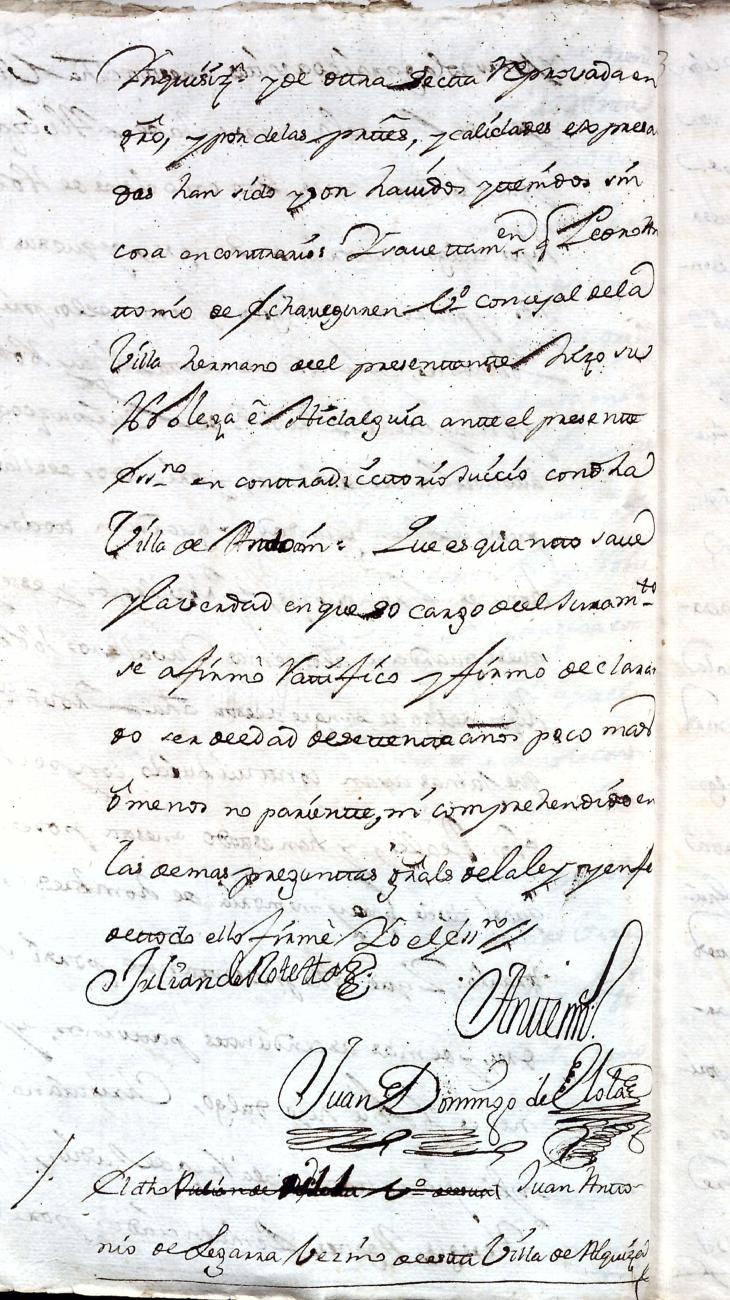 Inquisizⁿ y de ottra Secta Reprovada en
dr̃o, y por de las prttes, y calidades expresa
das han sido y son havidos y ttenidos sin
cosa en contrario: Y save ttamᵉⁿ q̃
ttonio de Echaveguren Vº concejal de la
Villa hermano de el presenttantte hizo su
Nobleza ê Hidalguia antte el presentte
Essⁿᵒ en conttradicttorio Juicio con dha
Villa de Andoain: Que es quantto save
y la verdad en que so cargo de el Juramᵗᵒ
se afirmò Rattificò y firmò declaran
do ser de edad de settentta años poco mas
ô menos no parientte, ni comprehendido en
las demas preguntas gr̃als de la ley y en fe
de ttodo ello firmè Yo el Essⁿᵒ
Julian de
Antte mi
Juan Domingo de
El dho Julian de Vº de esta Juan Antto
nio de Legarra Vezino de estta Villa de